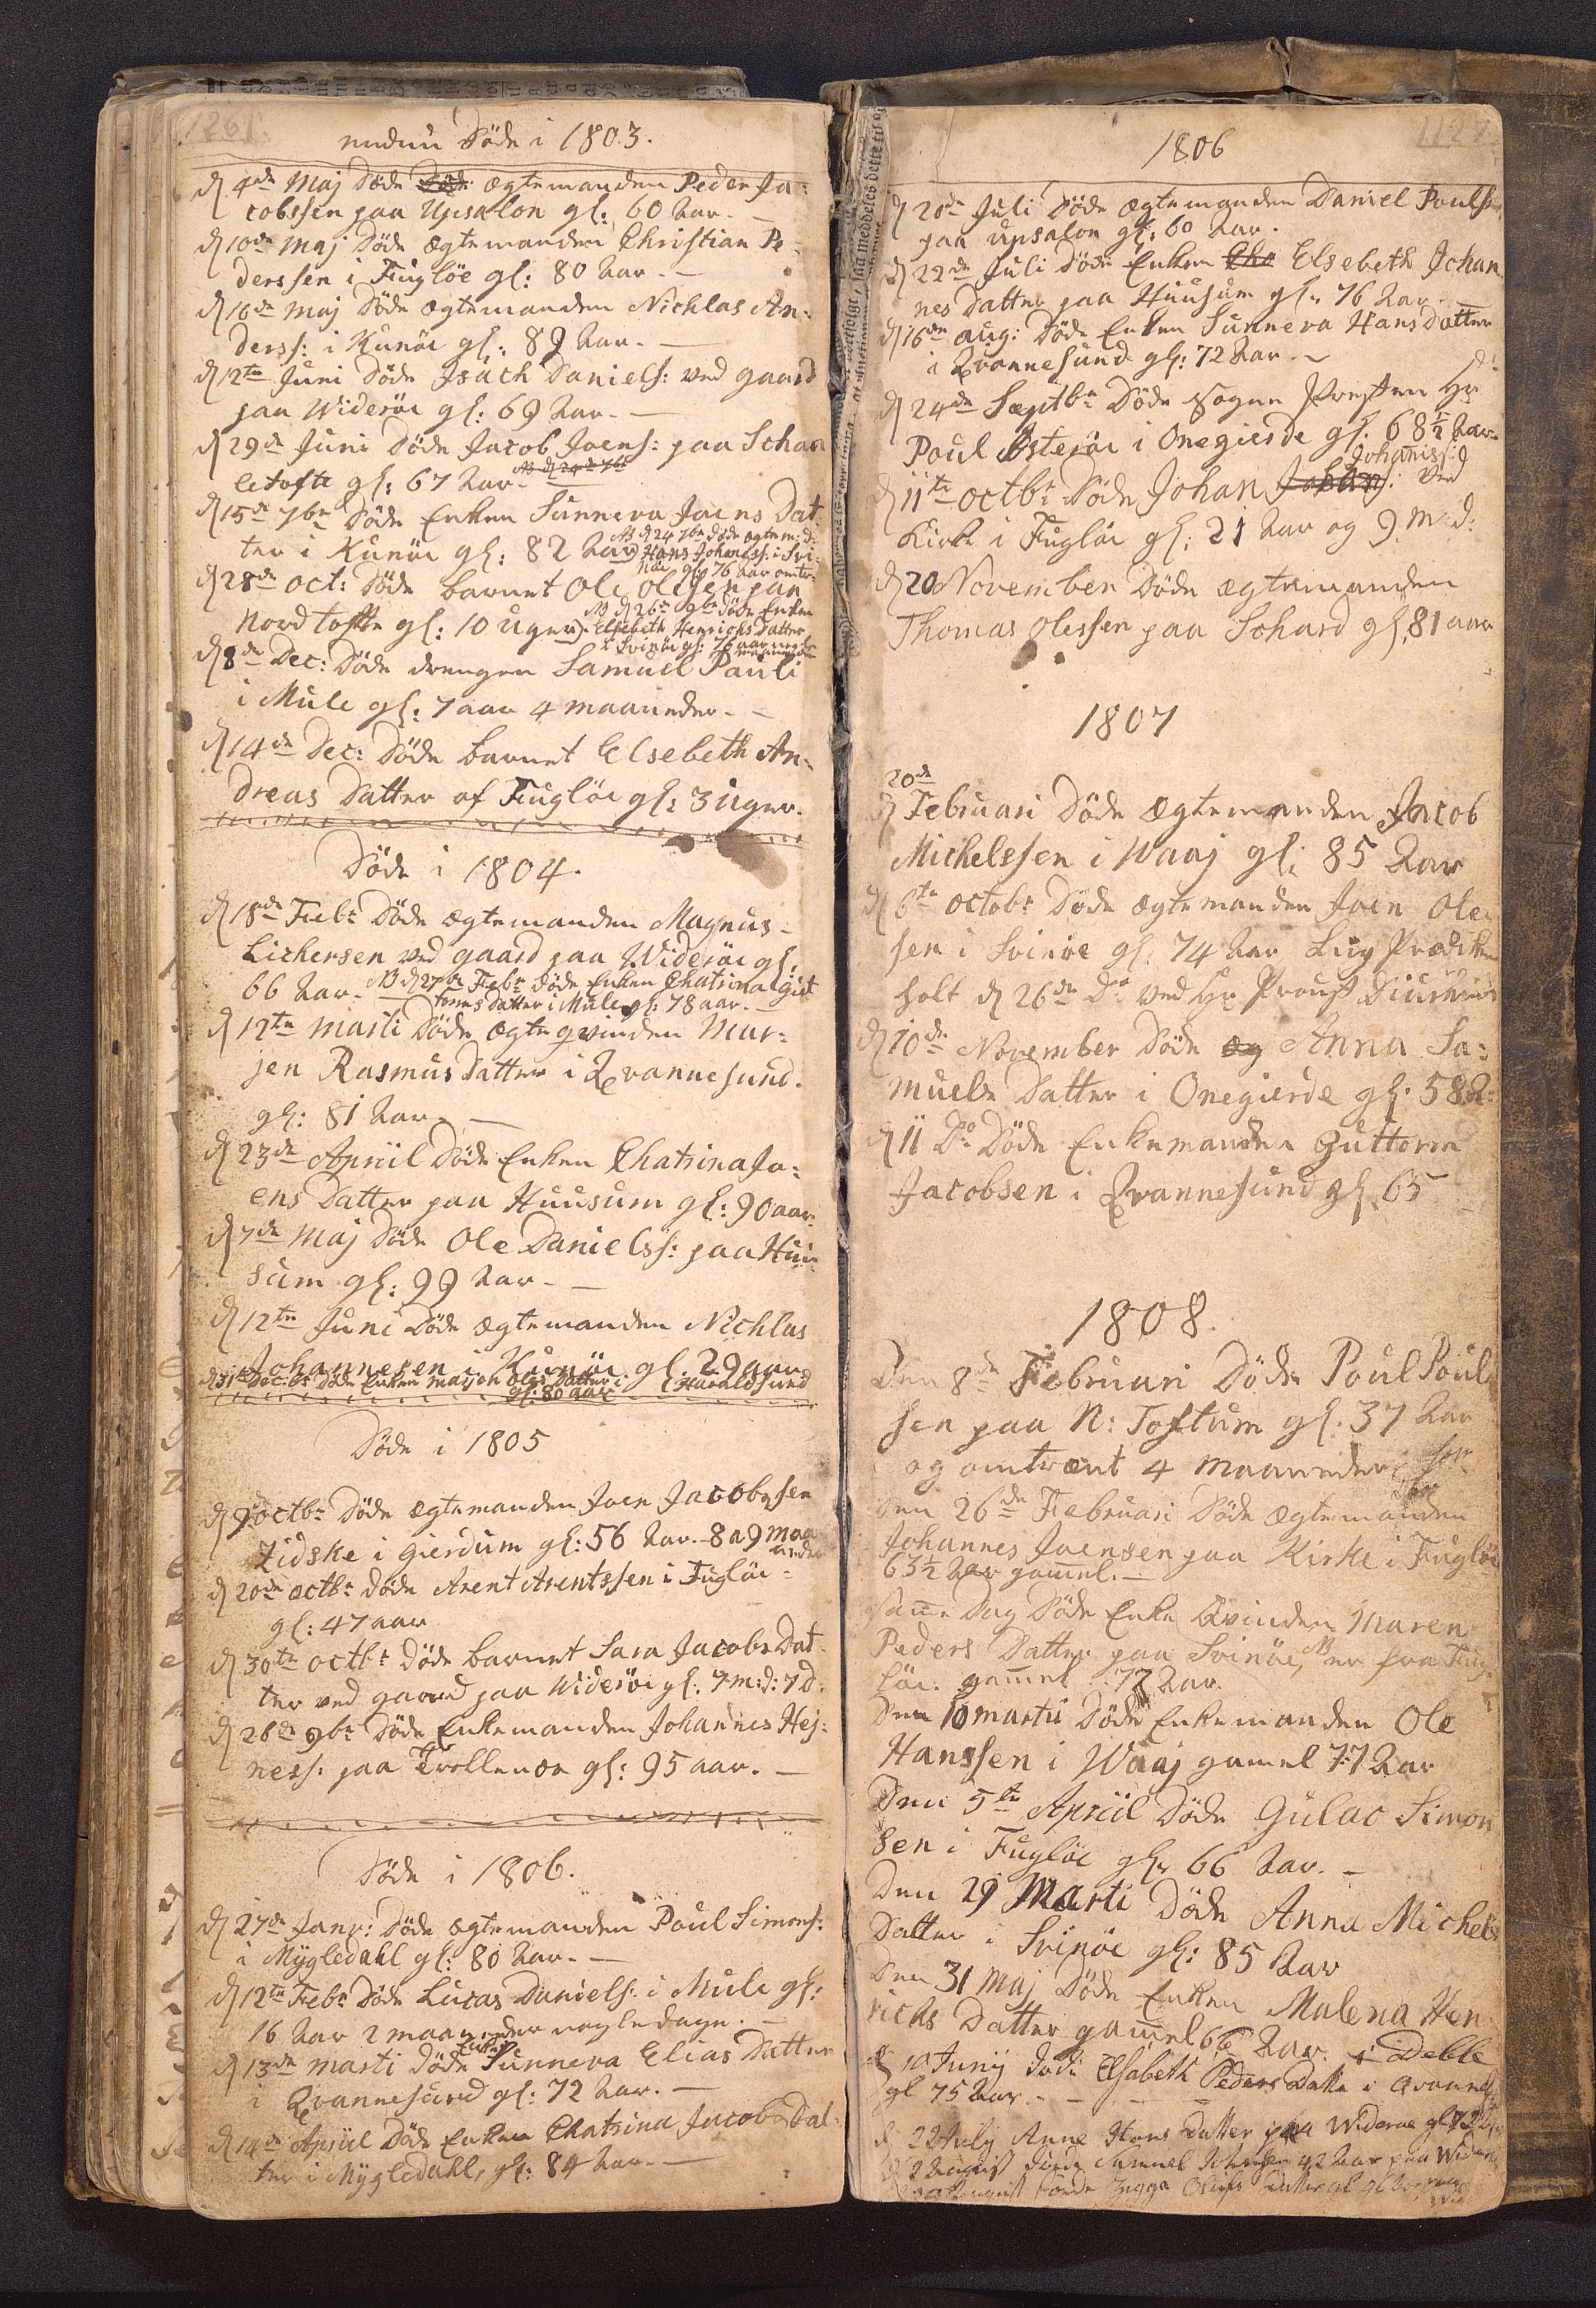 1261
endnu Døde i 1803.
d 4de Maj Døde Døde ægtemanden Peder Ja-
cobssen paa Upsalon gl: 60 Aar. –
d 10de Maj Døde ægtemanden Christian Pe-
derssen i Fugløe gl: 80 Aar. –
d 16de Maj Døde ægtemanden Nichlas An-
derss: i Kunøe gl: 89 Aar. –
d 12te Juni Døde Isach Daniels: ved gaard
paa Widerøe gl: 69 Aar. –
d 29de Juni Døde Jacob Joens: paa Schaa
letofte gl: 67 Aar. NB d 24de 7br
d 15de 7br Døde Enken Sunneva Joens Dat-
ter i Kunøe gl: 82 Aar
NB d 24 7br Døde ægtem:d:
Hans Johaness: i Svi-
nöe gl: 76 aar omtr:
d 28de Oct: Døde barnet Ole Olesen paa
Nordtofte gl: 10 Uger.
NB d 26de 9br døde Enken
Elsebeth Henrichs Datter
i Svinöe gl: 76 aar
d 8de Dec: Døde drengen Samuel Pauli
i Mule gl: 7 aar 4 maaneder. –
d 14de Dec: Døde barnet Elsebeth An-
dreas Datter af Fugløe gl: 3 Uger.
Døde i 1804.
d 18de Febr Døde ægtemanden Magnus
Lichersen ved gaard paa Widerøe gl:
66 Aar. – NB d 27de Febr Døde Enken Chatrina Gut
torms Datter i Mule gl: 78 aar. –
d 12te Marti Døde ægteqvinden Mar-
jen Rasmus Datter i Qvannesund.
gl: 81 Aar. –
d 23de Apriil Døde Enken Chatrina Jo-
ens Datter paa Huusum gl: 90 aar.
d 7de Maj Døde Ole Danielss: paa Huu-
sum gl: 99 Aar. –
d 12te Juni Døde ægtemanden Nichlas
Johannesen i Kunøe gl: 29 aar
d 31te Decbr Døde Enken Marjon Oles Datter i Haraldsund
gl: 80 aar
Døde i 1805
d 9de Octbr Døde ægtemanden Joen Jacobssen
Zidske i Gierdum gl: 56 Aar. 8 a 9 maa
neder
d 20de Octbr Døde Arent Arentssen i Fugløe
gl: 47 aar
d 30te Octbr Døde barnet Sara Jacobs Dat-
ter ved gaard paa Widerøe gl: 7 m:d: 7 d:
d 28de 9br Døde Enkemanden Johannes Hej-
ness: paa Trollenæs gl: 95 aar. –
Døde i 1806.
d 27de Janr: Døde ægtemanden Poul Simons:
i Mygledahl gl: 80 Aar. –
d 12te Febr Døde Lucas Daniels: i Mule gl:
16 Aar 2 maaneder nogle dage. –
Enken
d 13de Marti Døde Sunneva Elias Datter
i Qvannesund gl: 72 Aar. –
d 14de Apriil Døde Enken Chatrina Jacobs Dat-
ter i Mygledahl, gl: 84 Aar. –
1806
d 20de Juli Døde ægtemanden Daniel Poulss:
paa Upsalon gl: 60 Aar.
d 22de Juli Døde Enken Cha Elsebeth Johan
nes Datter paa Huusum gl: 76 Aar
d 16de Aug: Døde Enken Sunneva Hans Datter
i Qvannesund gl: 72 Aar. –
d 24de Septbr Døde Sogne Præsten Hr
Poul Østerøe i Onegierde gl: 68½ Aar
Johaniss:
d 11te Octbr Døde Johan Johans: ved
Kirke i Fugløe gl: 21 Aar og 9 M:d:
d 20 November Døde ægtemanden
Thomas Olessen paa Schard gl: 81 aar
1807
20de
d Februari Døde ægtemanden Jacob
Michelssen i Waaj gl: 85 Aar
d 6te Octobr Døde ægtemanden Joen Ole-
sen i Svinøe gl: 74 Aar Liig Prædiken
holt d 26de Do ved Hr Proust
d 10de November Døde æg Anna Sa-
muels Datter i Onegierde gl: 58 A:
d 11 Do Døde Enkemanden Guttorm
Jacobsen i Qvannesund gl: 65
1808.
Den 8de Februari Døde Poul Pouls
sen paa N: Toftum gl: 37 Aar
og omtrent 4 Maaneder
Den 26de Februari Døde ægtemanden
Johannes Joensen paa Kirke i Fugløe
63½ Aar gammel. –
Samme Dag Døde Enke Qvinden Maren
Peders Datter paa Svinøe, NB er fra Fug-
løe. gammel 72 Aar.
Den 10 Martii Døde Enkemanden Ole
Hanssen i Waaj gamel 77 Aar
Den 5te Apriil Døde Gulac Simon
sen i Fugløe gl: 66 Aar. –
Den 29 Marti Døde Anna Michels
Datter i Svinøe gl: 85 Aar
Den 31 Maj Døde Enken Malena Hen
richs Datter gammel 66 Aar. i Deble
d 10 Junij Døde Elsabeth Peders Datter i Qvannes
gl 75 Aar. – – –
d 22 July Anne Hans Datter paa Widerøe gl 72
d 2 August Døde Samuel Johansen 42 Aar paa Widerø
August Døde Olufs Datter gl